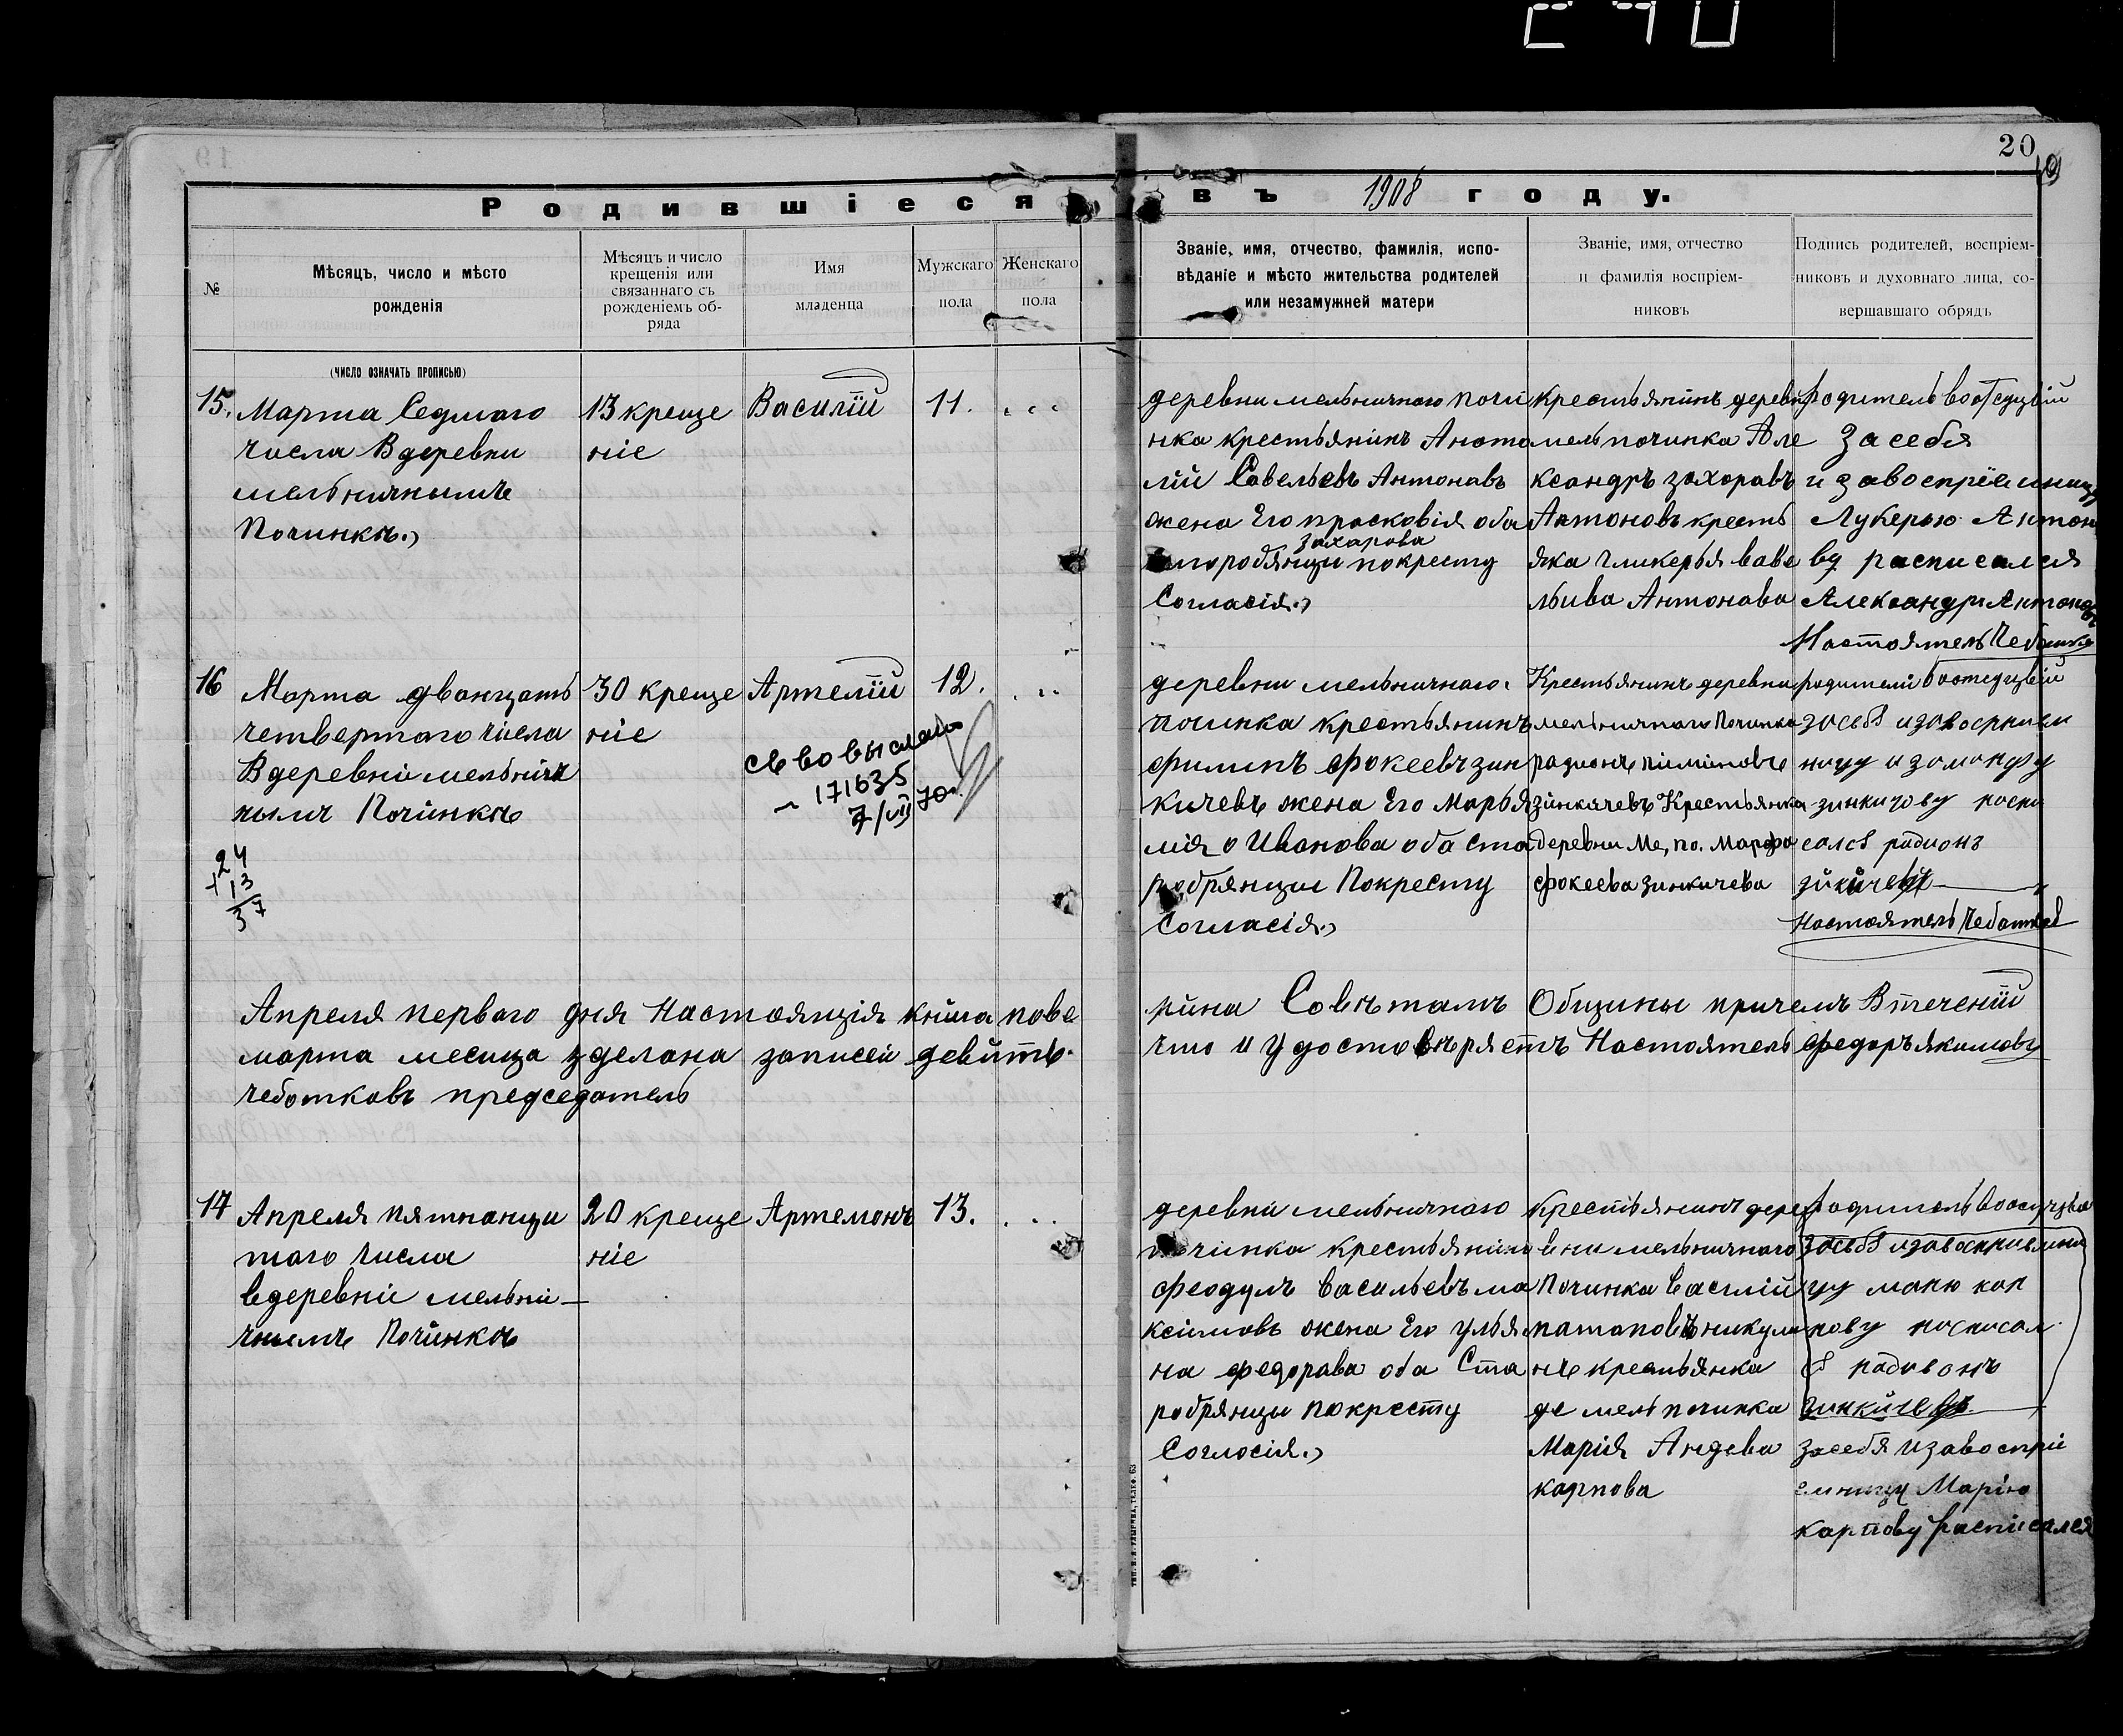 20
19
Родившіеся
въ 1908 году.
№
Мѣсяцъ, число и мѣсто
рожденія
Мѣсяцъ и число
крещенія или
связаннаго съ
рожденіемъ об-
ряда
Имя
младенца
Мужскаго
пола
Женскаго
пола
Званіе, имя, отчество, фамилія, испо-
вѣданіе и мѣсто жительства родителей
или незамужней матери
Званіе, имя, отчество
и фамилія воспріем-
никовъ
Подпись родителей, воспріем-
никовъ и духовнаго лица, со-
вершавшаго обрядъ
(ЧИСЛО ОЗНАЧАТЬ ПРОПИСЬЮ)
15.
Марта Седмаго
числа Вдеревни
мельничнымъ
Починкѣ.
13 креще
ніе
Василій
11.
деревни мельничнаго почи
нка крестьянинъ Анато
лій Савельевъ Антонавъ
жена Его прасковія оба
захарова
поробрянци покресту
Согласія.
крестьянинъ деревн
мель починка Але
ксандръ захоравъ
Антоновъ кресть
янка гликерья
Антонова
родитель
За себя
и завоспріемницу
Лукерью Антон
ву расписался
Александръ Антоновъ
Настоятель
16
Марта дванцать
четвертаго числа
Вдеревни мельнич
нымъ Починкѣ
30 креще
ніе
Артелій
12.
св во выслано
171635
7/VII 70г.
24
+13
37
деревни мельничнаго
починка крестьянинъ
филипъ фокеевъ зин
кичевъ жена Его Марья
Иванова оба ста
робрянци Покресту
Согласія.
Крестьянинъ деревни
мельничнаго Починка
радионъ пиминовъ
зинкичевъ Крестьянка
деревни Ме, по. Марфа
фокеева зинкичева
родители
засебя изавосприем
ницу
зинкичову роспи
салса радионъ
Настоятель Чеботков
Апреля перваго дня Настоящія книга пове
рина Совѣтамъ Общины причемъ Втеченій
марта месица зделана записей девить
что и Удостовѣряетъ Настоятель федоръ якимовъ
чеботковъ председатель
17
Апреля пятнанци
таго числа
вдеревніе мельни-
чнымъ Починкѣ
20 креще
ніе
Артемонъ
13.
деревни мельничнаго
починка крестьянинъ
феодулъ васильевъ ма
ксимовъ жена Его улья
на федорава оба Ста
робрянци покресту
Согласія.
крестьянинъ дере
вни мельничнаго
Починка василій
патаповъ никули
нъ крестьянка
де мель починка
Марія Андева
карпова
родитель
засебя
цу марю кар
пову росписал
ся радивонъ
зинкичевъ
засебя изавоспріе
мницу Марію
карпову расписался
ТИП. Н. Л. НЫРКИНА, ТЕЛЕФ. 63